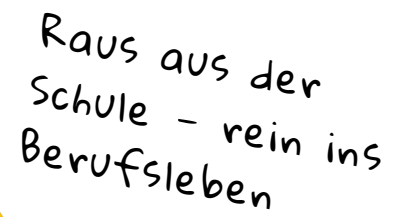 Raus aus der
Schule – rein ins
Berufsleben